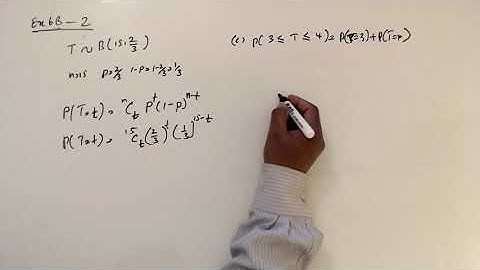 Ex 6B - 2
T ~ B(15, 2/3)
n=15 p=2/3 1-p=1-2/3=1/3
P(T=t) = ⁿCₜ pᵗ (1-p)ⁿ⁻ᵗ
P(T=t) = ¹⁵Cₜ (2/3)ᵗ (1/3)¹⁵⁻ᵗ
(c) P(3 ≤ T ≤ 4) = P(T=3) + P(T=4)